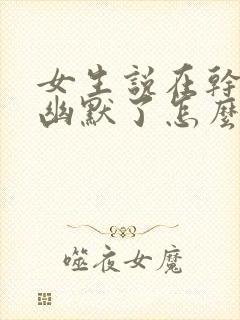 女生说在幹
幽默了怎麼
噬夜女魔